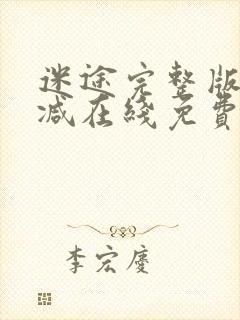 迷途完整版
减在线免費
李宏慶